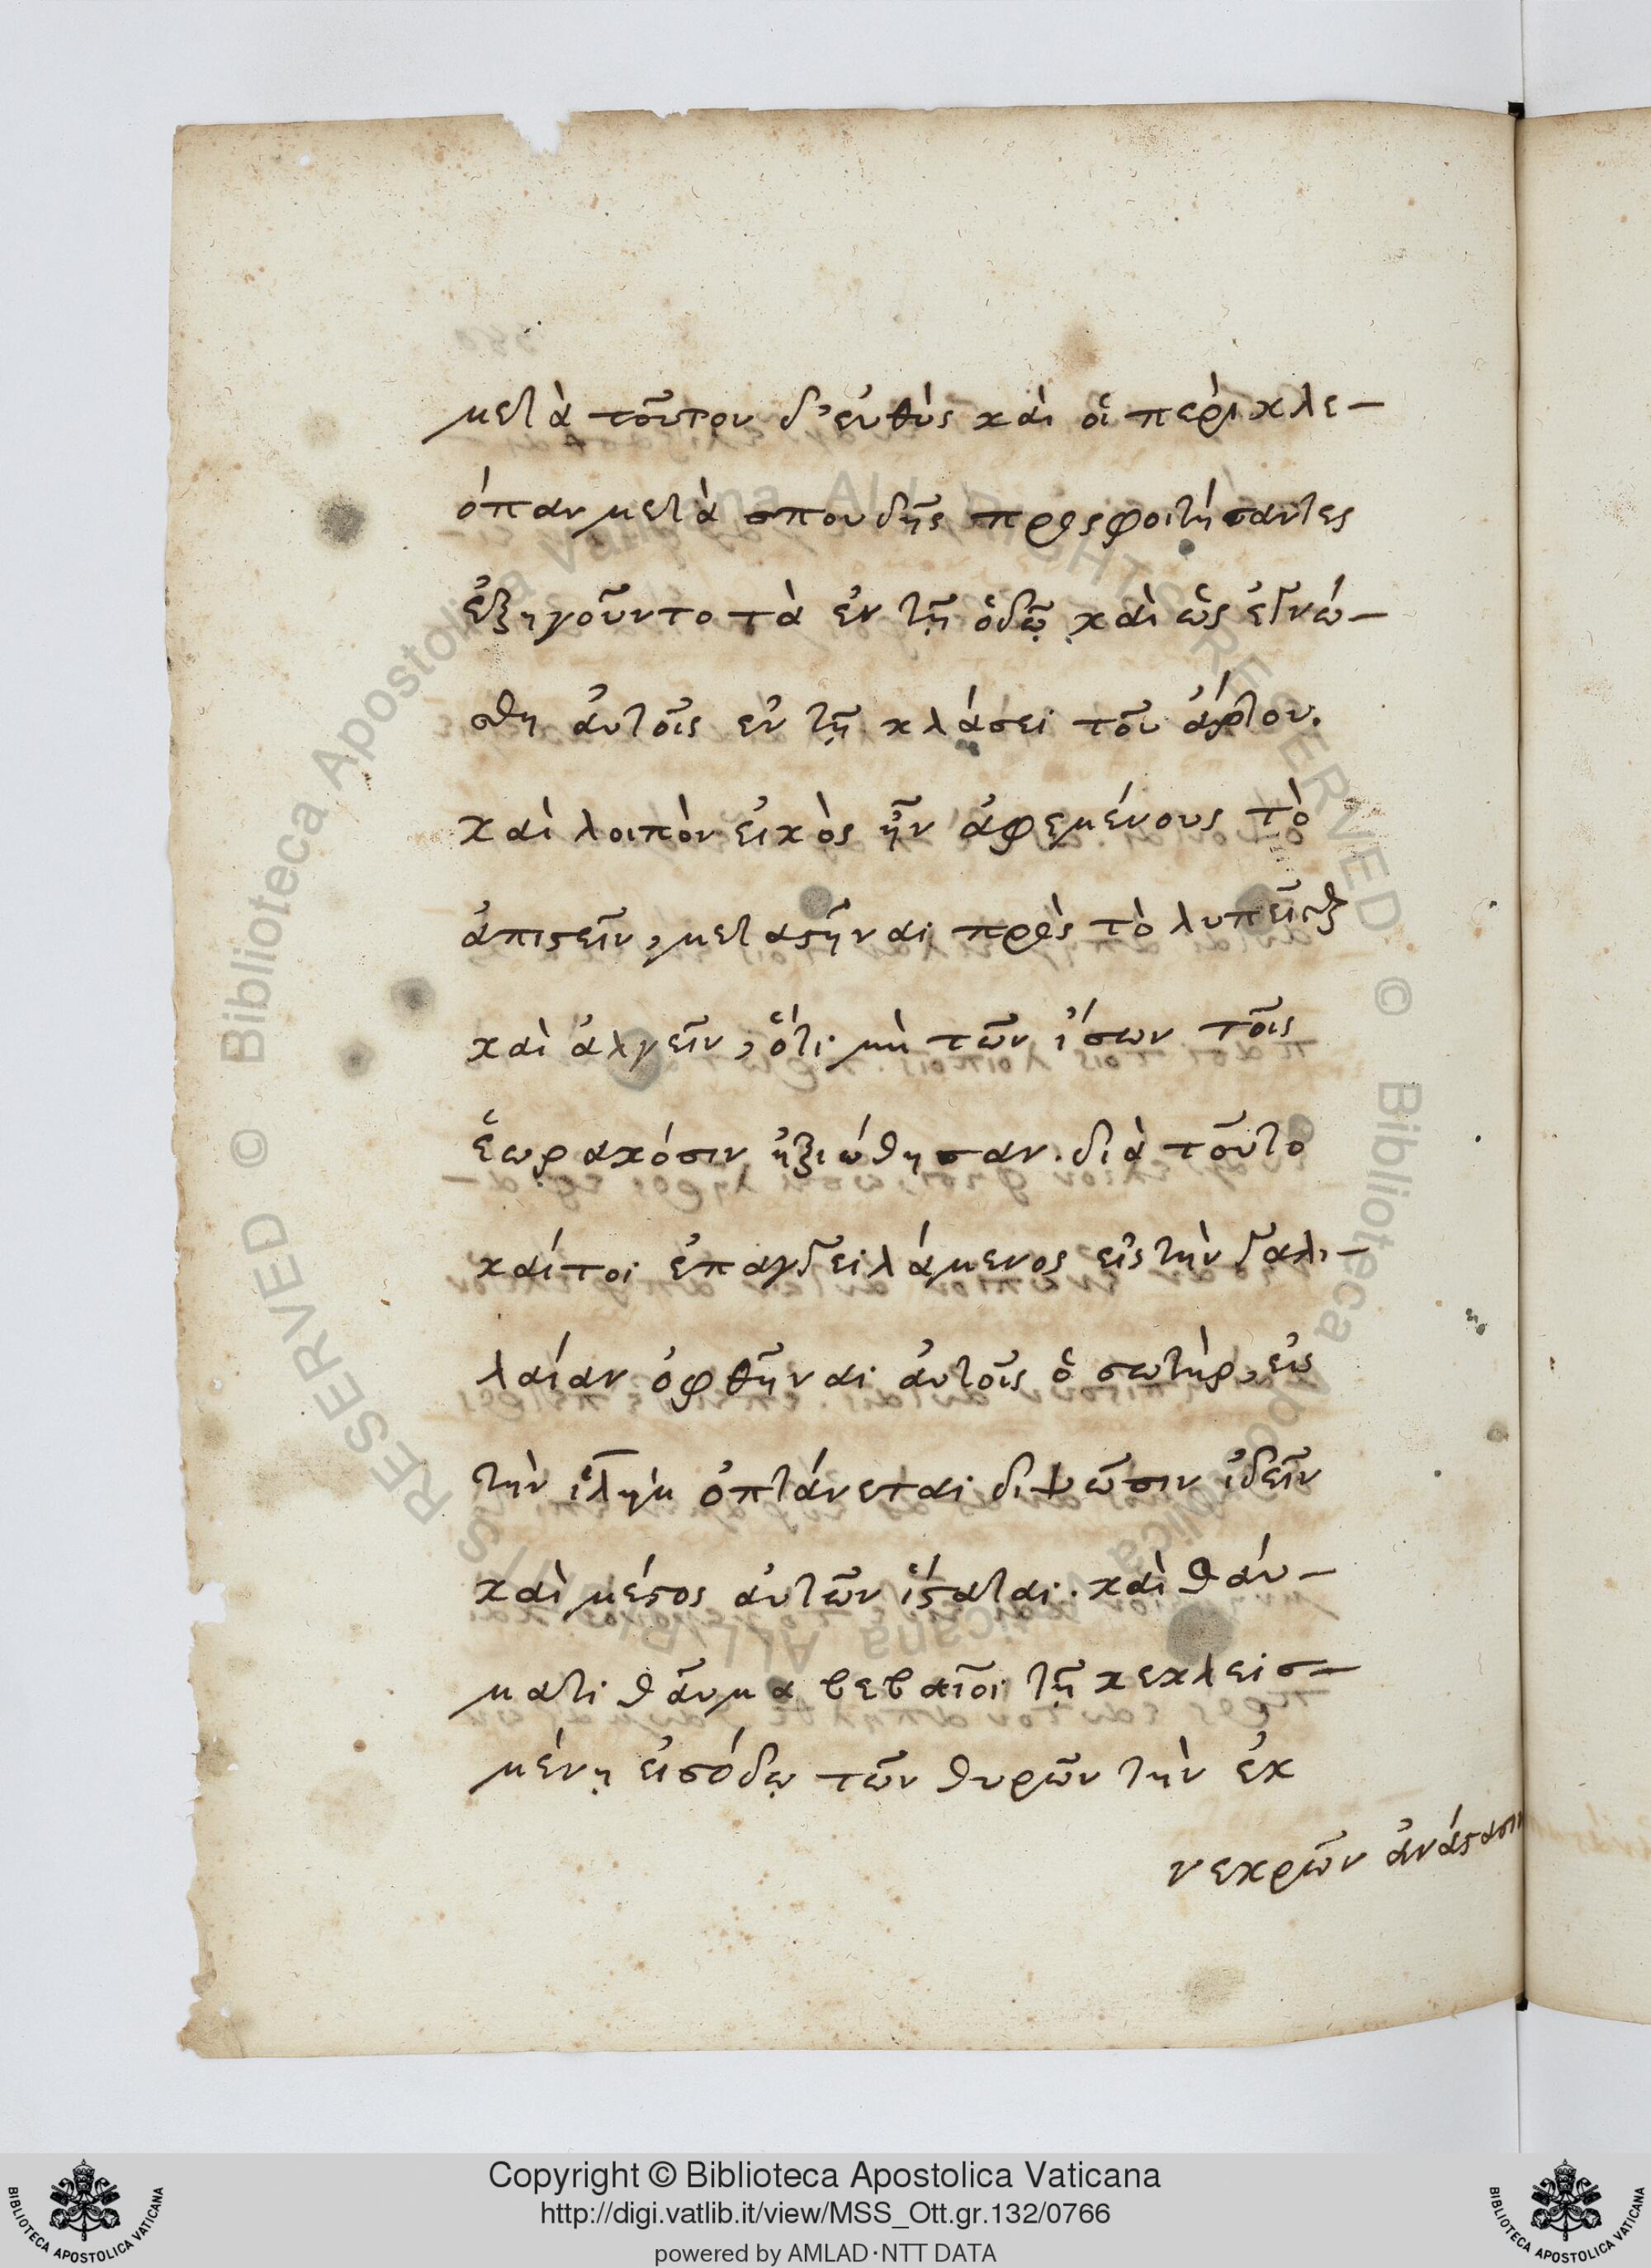 μετὰ τοῦτον δ' εὐθὺς καὶ οἱ περὶ κλε-
όπαν μετὰ σπουδῆς προσφοιτήσαντες
ἐξηγοῦντο τὰ ἐν τῇ ὁδῷ καὶ ὡς ἐγνώ-
σθη αὐτοῖς ἐν τῇ κλάσει τοῦ ἄρτου.
καὶ λοιπὸν εἰκὸς ἦν ἀφεμένους τὸ
ἀπιστεῖν, μεταστῆναι πρὸς τὸ λυπεῖσθαι
καὶ ἀλγεῖν, ὅτι μὴ τῶν ἴσων τοῖς
ἑωρακόσιν ἠξιώθησαν. διὰ τοῦτο
καίτοι ἐπαγγειλάμενος εἰς τὴν γαλι-
λαίαν ὀφθῆναι αὐτοῖς ὁ σωτὴρ, εἰς
τὴν ἱλὴμ ὀπτάνεται διψῶσιν ἰδεῖν
καὶ μέσος αὐτῶν ἵσταται. καὶ θαύ-
ματι θαῦμα βεβαιοῖ τῇ κεκλεισ-
μένῃ εἰσόδῳ τῶν θυρῶν τὴν ἐκ
νεκρῶν ἀνάστασιν
Copyright © Biblioteca Apostolica Vaticana
http://digi.vatlib.it/view/MSS_Ott.gr.132/0766
powered by AMLAD·NTT DATA
BIBLIOTECA APOSTOLICA VATICANA
BIBLIOTECA APOSTOLICA VATICANA